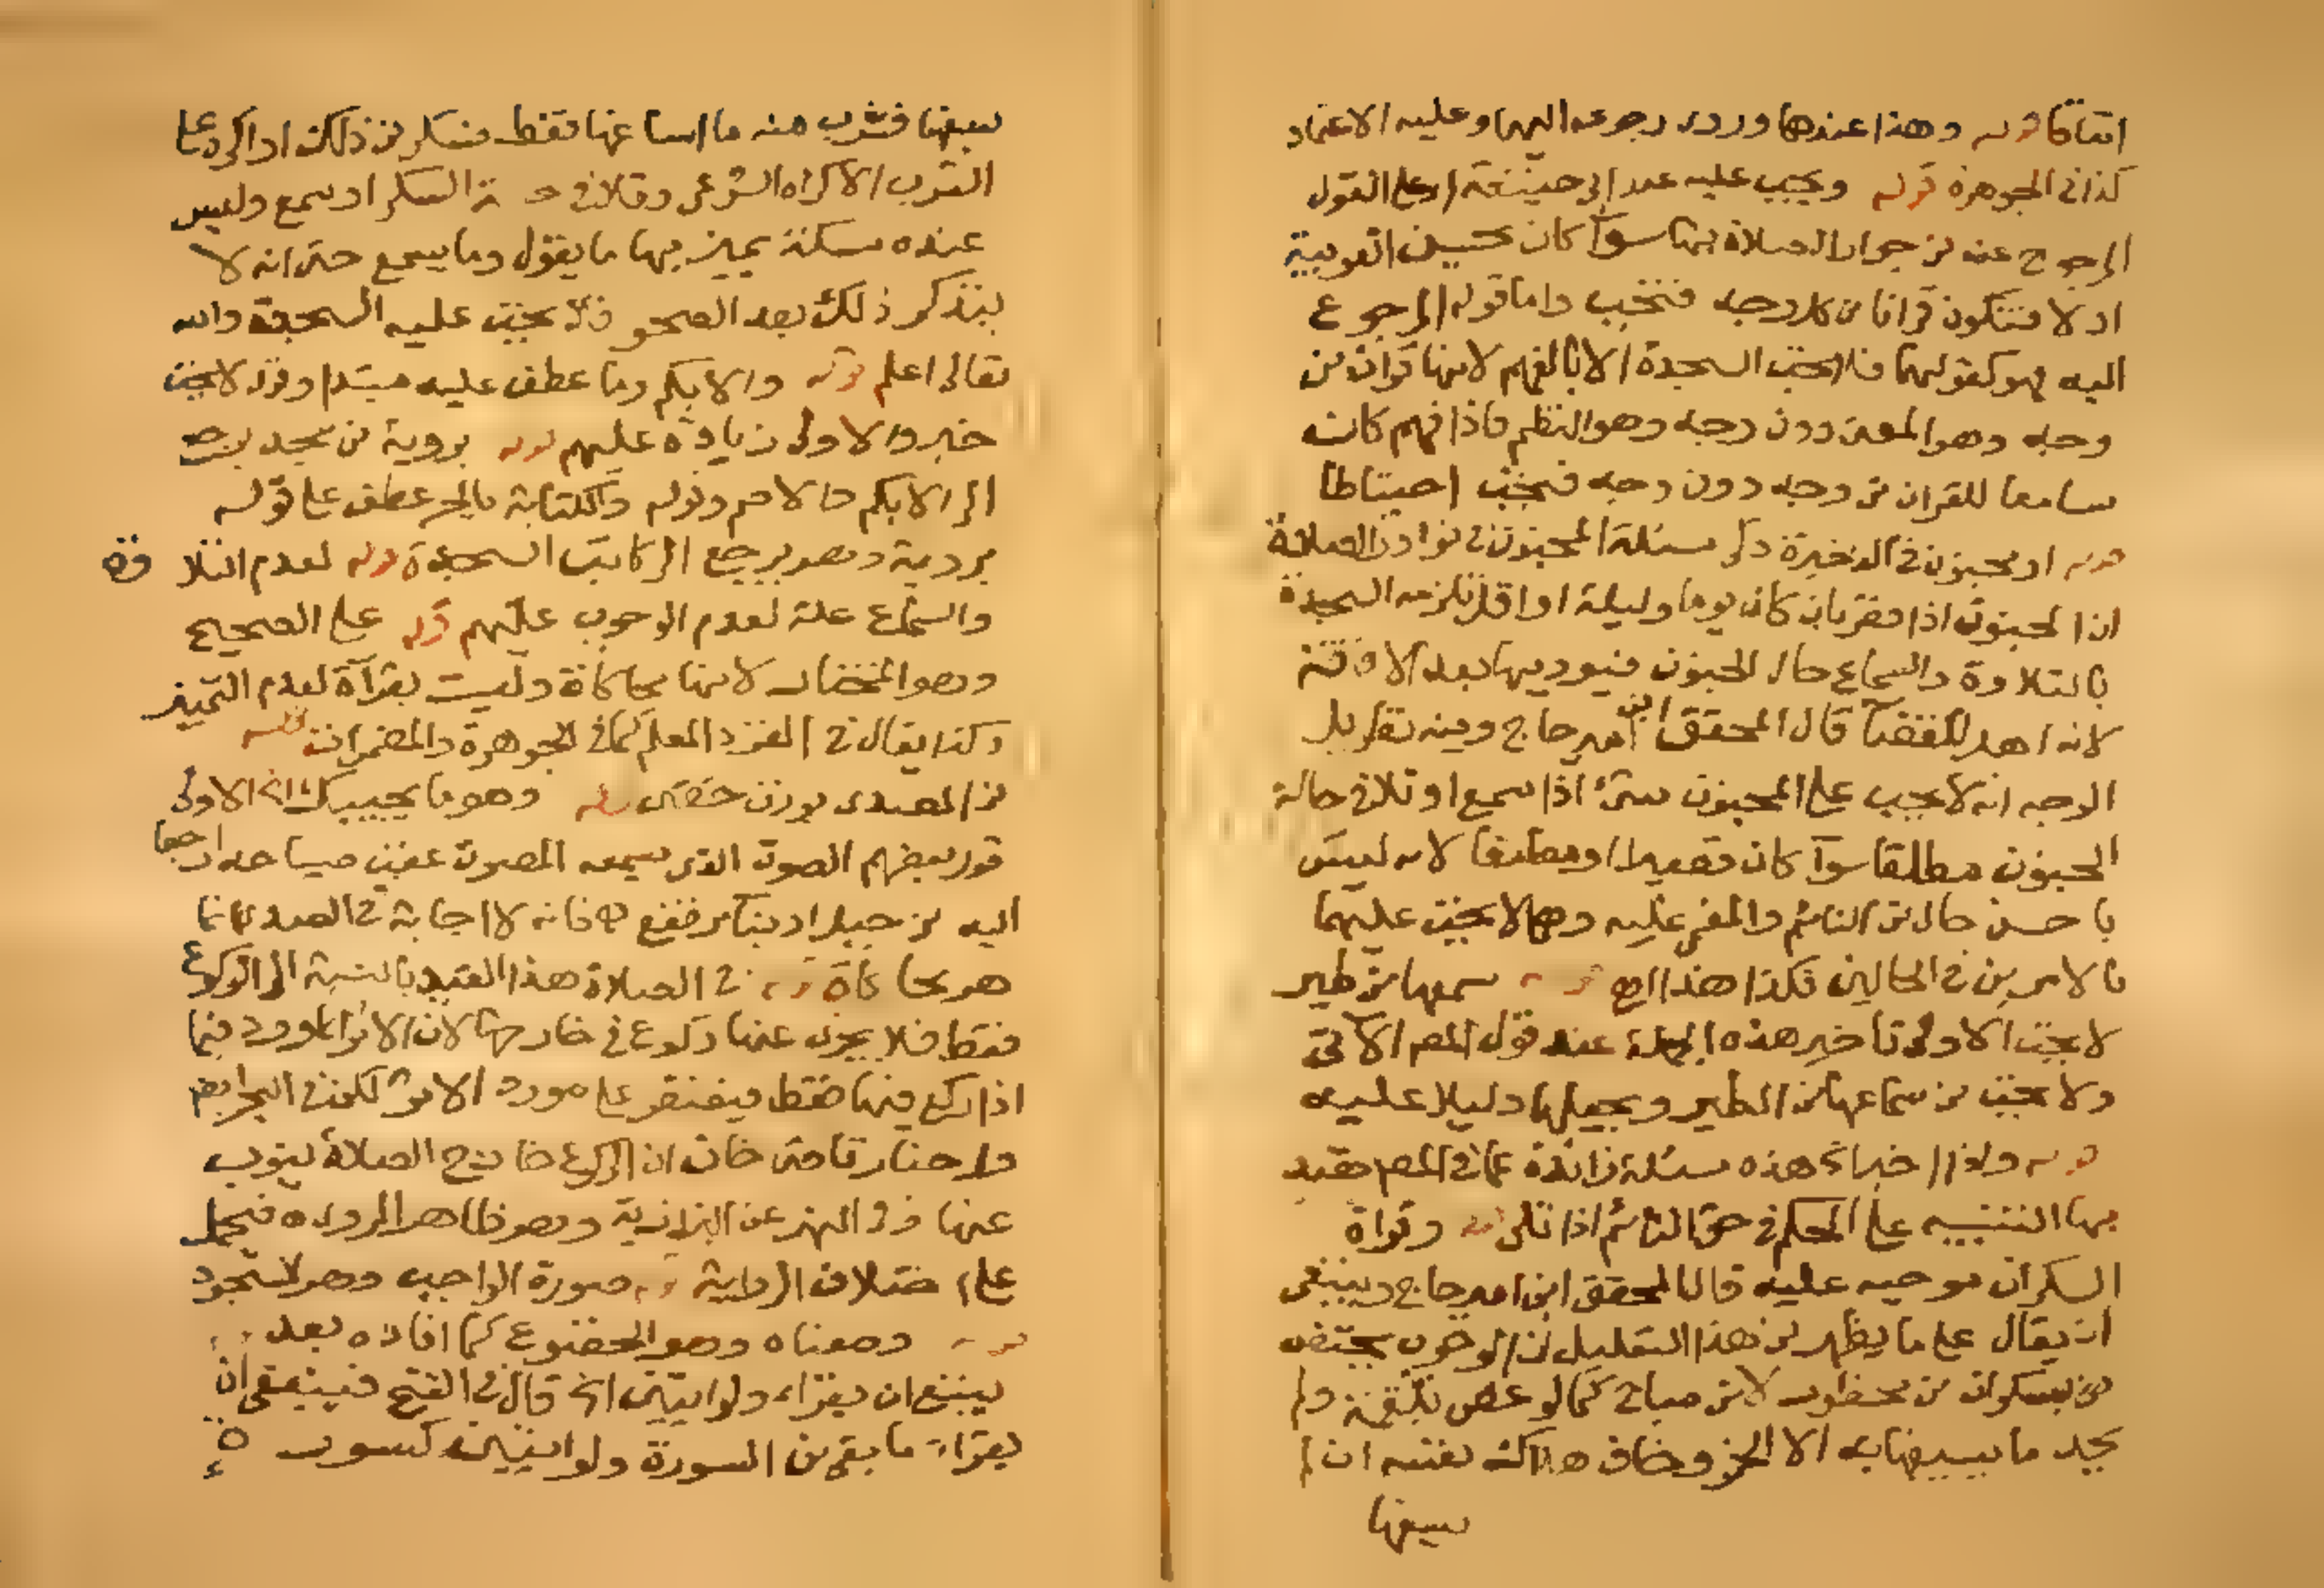 اتفاقا قوله وهذا عندهما وروى رجوعه اليهما وعليه الاعتماد
كذا فى الجوهرة قوله ويجب عليه عند ابى حنيفة اوعلى القول
المرجوع عنه من جواز الصلاة بها سوآ كان يحسن العربية
او لا فتكون قرانا من كل وجه فتجب واما قوله المرجوع
اليه فهو كقولهما فلا تجب السجدة الا بالفهم لانها قران من
وجه وهو المعنى دون وجه وهو النظم فاذا فهم كان
سامعا للقران من وجه دون وجه فتجب احتياطا
قوله او مجنون فى الذخيرة ذكر مسئلة المجنون فى نوادر الصلاة
ان المجنون اذا قصر بان كان يوما وليلة او اقل تلزمه السجدة
بالتلاوة والسماع حال الجنون فيوديها بعد الافاقة
لانه اهل للقضآ قال المحقق ابن امير حاج وفيه نظر بل
الوجه انه لا يجب على المجنون شئ اذا سمع او تلا فى حالة
الجنون مطلقا سوآ كان قصيرا او مطبقا لانه ليس
باحسن حال من النائم والمغمى عليه وهما لا تجب عليهما
بالامرين فى الحالين فكذا هذا اهـ قوله سمعها من طير
لا تجب الاولى تاخير هذه الجملة عند قول المص الآتى
ولا تجب من سماعها من الطير ويجعلها دليلا عليه
قوله واذا اخبر هذه مسئلة زائدة عما فى المص قصد
بها التنبيه على الحكم فى حق النائم اذا تلى قوله وقراة
السكران موجبه عليه قال المحقق ابن امير حاج وينبغى
ان يقال على ما يظهر من هذا التعليل ان الوجوب يختص
بمن سكران من محظور لا من مباح كما لو غص بلقمة ولم
يجد ما يسيغها به الا الخمر وخاف هلاك نفسه ان لم
يسيغها
يسيغها فشرب منه ما اساغها فقط فسكر من ذلك او اكره على
الشرب الاكراه الشرعى وتلا فى حالة السكر او سمع وليس
عنده مسكنة يميز بها ما يقول وما يسمع حتى انه لا
يتذكر ذلك بعد الصحو فلا تجب عليه السجدة والله
تعالى اعلم قوله والابكم وما عطف عليه مبتدا وقوله لا تجب
خبره والاولى زيادة عليهم قوله بروية من سجد يرجع
الى الابكم والاصم وقوله والكتابة بالجر عطف على قوله
بروية وهو يرجع الى كاتب السجدة قوله لعدم التلاوة
والسماع علة لعدم الوجوب عليهم قوله على الصحيح
وهو المختار لانها محاكاة وليست بقرآة لعدم التمييز
وكذا يقال فى القرد المعلم كما فى الجوهرة والمضمرات قوله
من الصدى بوزن حصى قوله وهو ما يجيبك الخ الاولى
قول بعضهم الصوت الذى يسمعه المصوت عقب صياحه راجعا
اليه من جبل او بنآ مرتفع اهـ فانه لا اجابة فى الصدى وانما
هو محاكاة قوله فى الصلاة هذا القيد بالنسبة الى الركوع
فقط فلا يجزى عنها ركوع فى خارجها لان الاثر انما ورد فيما
اذا ركع فيها فقط فيقتصر على مورد الاثر لكن فى البحر ايضا
وارجنا رتا حتى خان ان الركوع خارج الصلاة ينوب
عنها وفى النهر عن البزازية وهو ظاهر المروى اهـ فيحمل
على اختلاف الرواية قوله صورة الواجب وهو السجود
قوله ومعناه وهو الخضوع كما افاده بعد
ينبغى ان يقرا ولو ايتين الخ قال فى الفتح فينبغى ان
يقرا ما بقى من السورة ولو ايتين كسورة